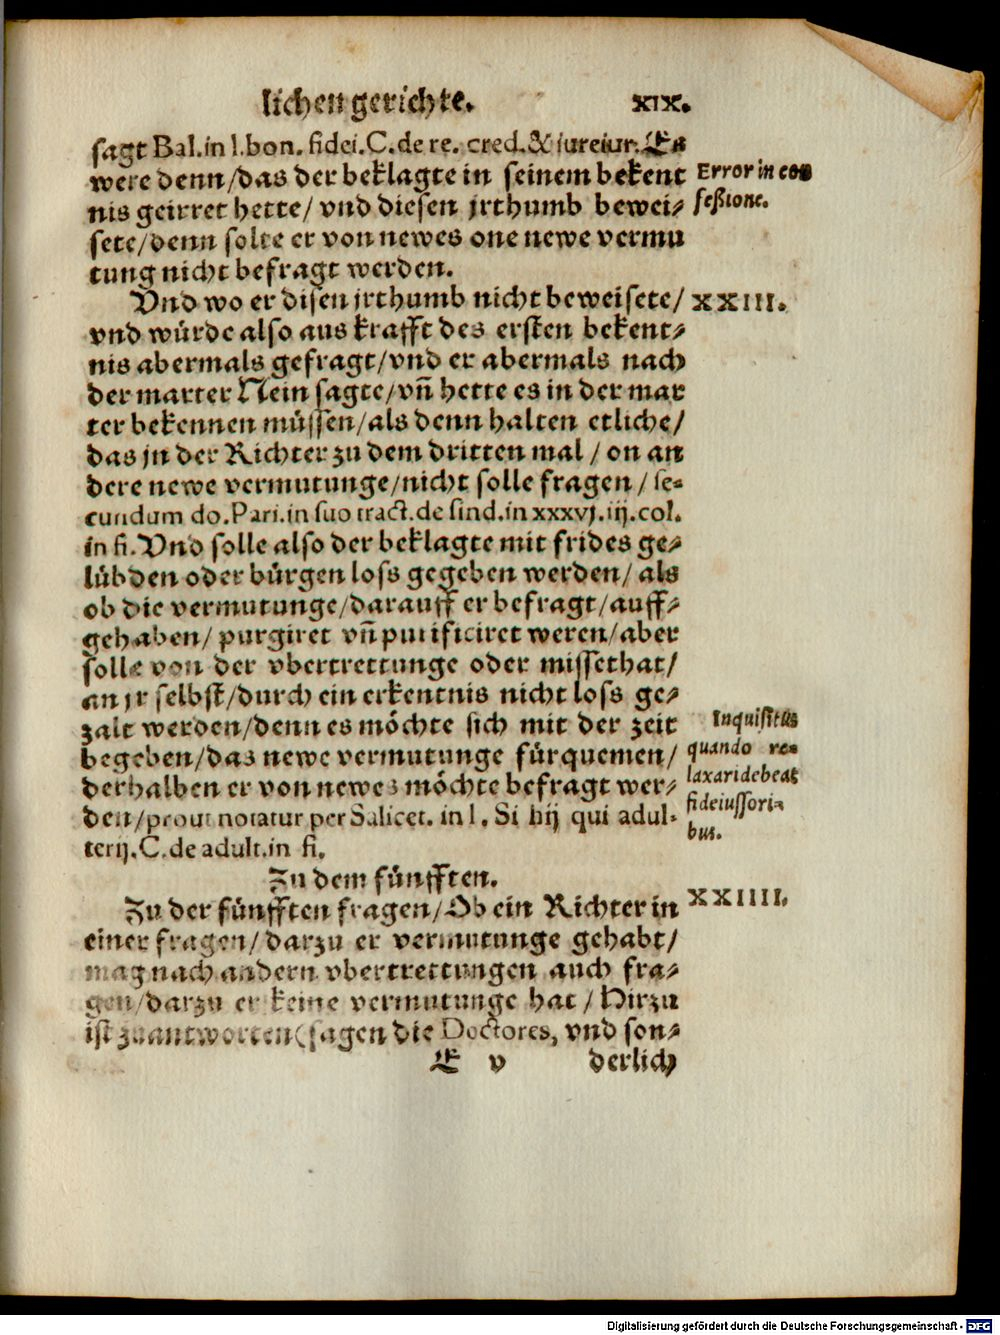 lichen gerichte. XIX.
sagt Bal. in l. bon. fidei. C. de re. cred. & iureiur. Es
were denn/das der beklagte in seinem bekent
Error in con
nis geirret hette/ vnd diesen jrthumb bewei⸗
feßione.
sete/denn solte er von newes one newe vermu
tung nicht befragt werden.
Vnd wo er disen jrthumb nicht beweisete/
XXIII.
vnd würde also aus krafft des ersten bekent⸗
nis abermals gefragt/vnd er abermals nach
der marter Nein sagte/vñ hette es in der mar
ter bekennen müssen/als denn halten etliche/
das jn der Richter zu dem dritten mal / on an
dere newe vermutunge/nicht solle fragen/ se⸗
cundum do. Pari. in suo tract. de sind. in xxxvj. iij. col.
in fi. Vnd solle also der beklagte mit frides ge⸗
lübden oder bürgen loss gegeben werden/ als
ob die vermutunge/darauff er befragt/auff⸗
gehaben/ purgiret vñ purificiret weren/aber
solle von der vbertrettunge oder missethat/
an jr selbst/durch ein erkentnis nicht loss ge⸗
zalt werden/denn es möchte sich mit der zeit
Inquisitus
begeben/das newe vermutunge fürquemen/
quando re⸗
derhalben er von newes möchte befragt wer⸗
laxari debeat
den/prout notatur per Salicet. in l. Si hij qui adul⸗
fideiussori⸗
bus.
terij. C. de adult. in fi.
Zu dem fünfften.
Zu der fünfften fragen/Ob ein Richter in
XXIIII.
einer fragen/darzu er vermutunge gehabt/
mag nach andern vbertrettungen auch fra⸗
gen/darzu er keine vermutunge hat / Hirzu
ist zuantworten (sagen die Doctores, vnd son⸗
E v derlich
Digitalisierung gefördert durch die Deutsche Forschungsgemeinschaft - DFG